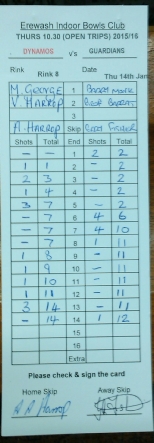 Erewash Indoor Bowls Club
THURS 10.30 (OPEN TRIPS) 2015/16
DYNAMOS v's GUARDIANS
Rink Rink 8 Date Thu 14th Jan
M GEORGE 1
V HARROP 2
3
A. HARROP Skip
Shots Total End Shots Total
- - 1 2 2
1 1 2 - 2
2 3 3 - 2
1 4 4 - 2
3 7 5 - 2
- 7 6 4 6
- 7 7 4 10
- 7 8 1 11
1 8 9 - 11
1 9 10 - 11
1 10 11 - 11
1 11 12 - 11
3 14 13 - 11
- 14 14 1 12
15
16
Extra
Please check & sign the card
Home Skip Away Skip